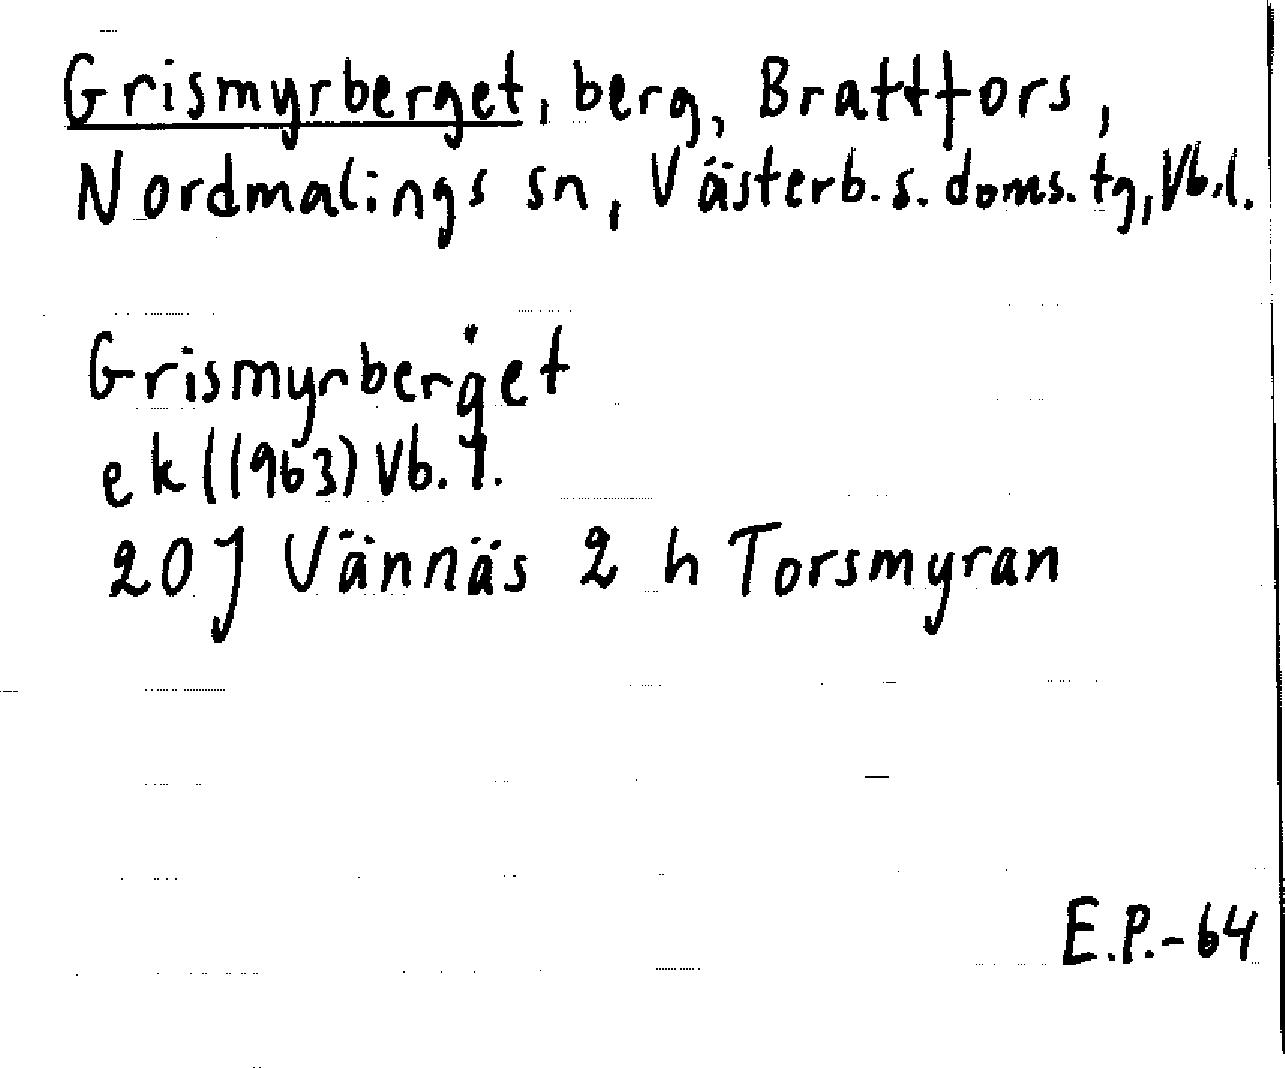 Grismyrberget, berg, Brattfors,
Nordmalings sn, Västerb. s. doms. tg, Vb. l.
Grismyrberget
ek (1963) Vb. l.
20J Vännäs 2 h Torsmyran
E.P.-64